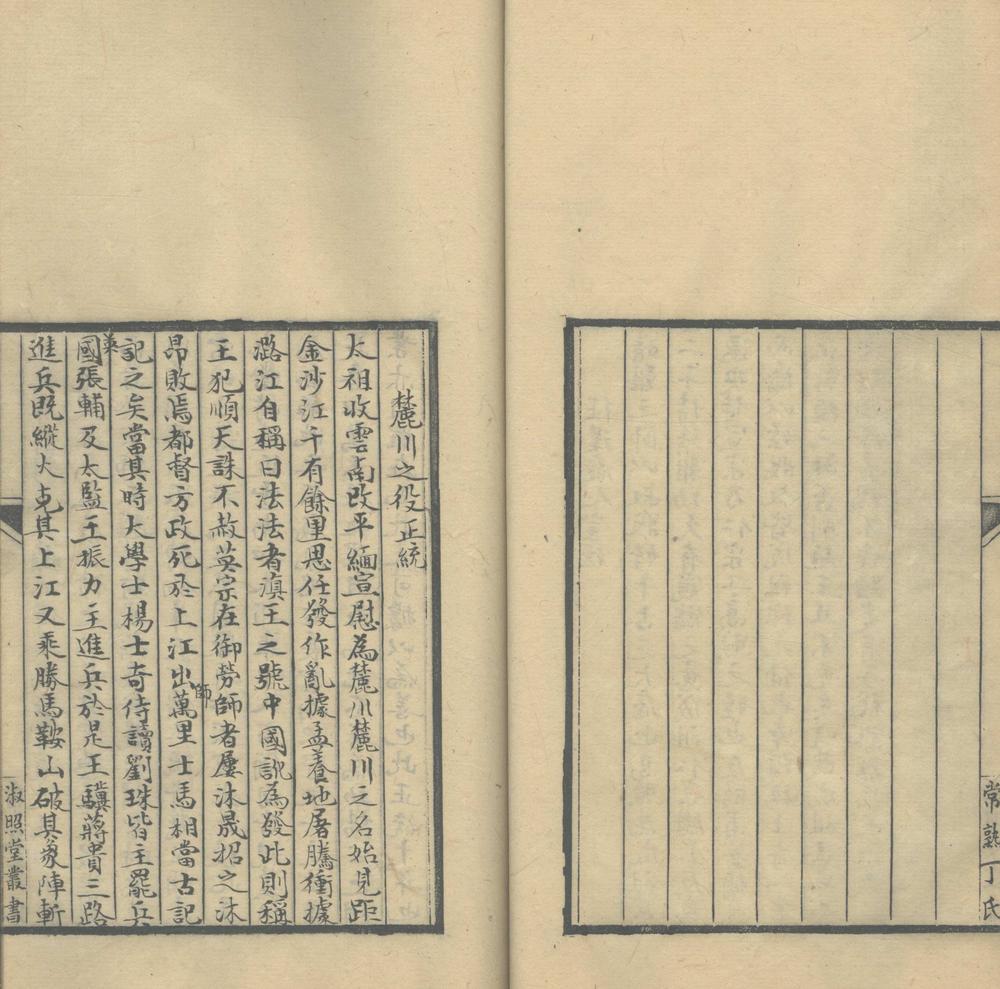 常熟丁氏
麓川之役正統
太祖收雲南改平緬宣慰為麓川麓川之名始見距
金沙江千有餘里思任發作亂據孟養地屠騰衝據
潞江自稱曰法法者滇王之號中國訛為發此則稱
王犯順天誅不赦英宗在御勞師者屢沐晟招之沐
昂敗焉都督方政死於上江出師萬里士馬相當古記
記之矣當其時大學士楊士奇侍讀劉珠皆主罷兵
英國張輔及太監王振力主進兵於是王驥蔣貴三路
進兵既縱火克其上江又乘勝馬鞍山破其象陣斬
淑照堂叢書